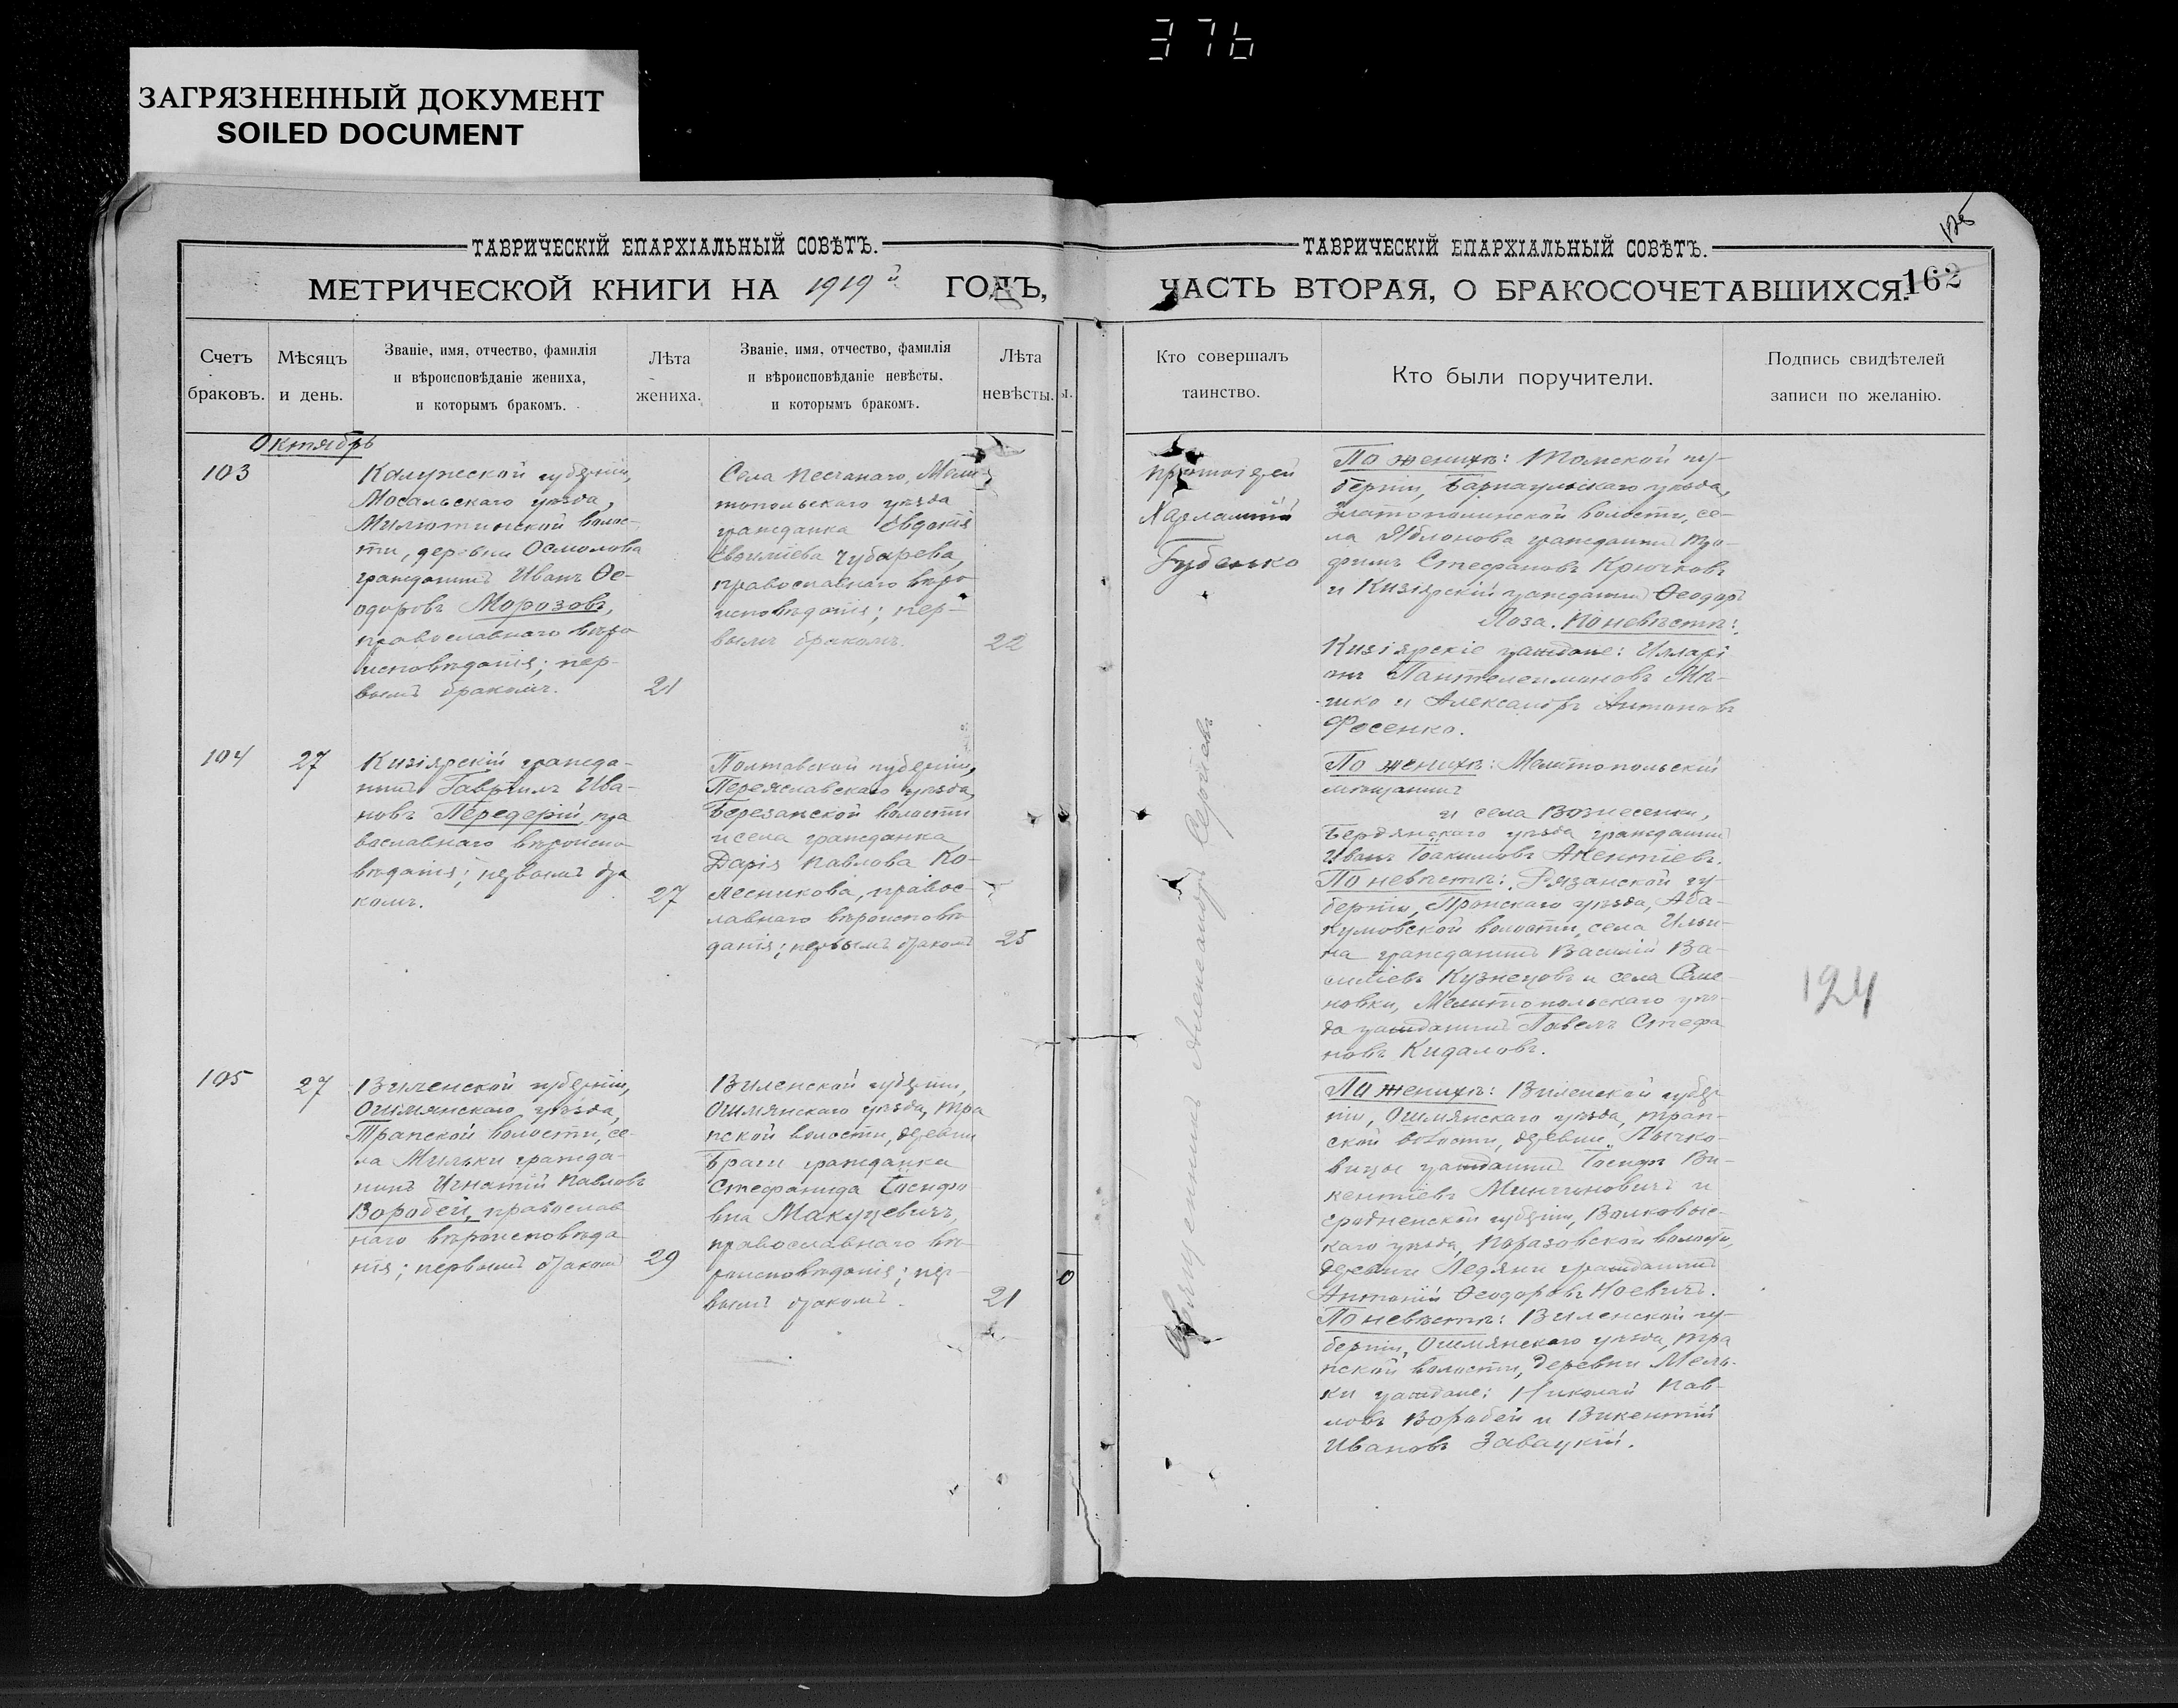 376
ЗАГРЯЗНЕННЫЙ ДОКУМЕНТ
SOILED DOCUMENT
ТАВРИЧЕСКІЙ ЕПАРХІАЛЬНЫЙ СОВѢТЪ.
МЕТРИЧЕСКОЙ КНИГИ НА 1919й ГОДЪ,
Счетъ браковъ.
Мѣсяцъ и день.
Званіе, имя, отчество, фамилія
и вѣроисповѣданіе жениха,
и которымъ бракомъ.
Лѣта жениха.
Званіе, имя, отчество, фамилія
и вѣроисповѣданіе невѣсты,
и которымъ бракомъ.
Лѣта невѣсты.
Октябрь
103
Калужской губерніи,
Мосальскаго уѣзда,
Милютинской волос-
ти, деревни Осмолова
гражданинъ Иванъ Ѳе-
одоровъ Морозовъ,
православнаго вѣро
исповѣданія; пер-
вымъ бракомъ.
21
Села Песчанаго, Мели
топольскаго уѣзда
гражданка Евдокія
Чубарева,
православнаго вѣро
исповѣданія; пер-
вымъ бракомъ.
22
104
27
Кизіярскій гражда-
нинъ Гавріилъ Ива-
новъ Передерій, пра
вославнаго вѣроиспо
вѣданія; первымъ бра
комъ.
27
Полтавской губерніи,
Переяславскаго уѣзда,
Березанской волости
и села гражданка
Дарія Павлова Ко-
лесникова, правос-
лавнаго вѣроисповѣ
данія; первымъ бракомъ
25
105
27
Виленской губерніи,
Ошмянскаго уѣзда,
Трапской волости, се-
ла Мильки гражда-
нинъ Игнатій Павловъ
Воробей, православ
наго вѣроисповѣда
нія; первымъ бракомъ
29
Виленской губерніи,
Ошмянскаго уѣзда, Тра
пской волости, деревни
Браги гражданка
Стефанида Іосифо
вна Макуцевичъ,
православнаго вѣ-
роисповѣданія; пер-
вымъ бракомъ.
21
ТАВРИЧЕСКІЙ ЕПАРХІАЛЬНЫЙ СОВѢТЪ.
ЧАСТЬ ВТОРАЯ, О БРАКОСОЧЕТАВШИХСЯ.
162
Кто совершалъ
таинство.
Кто были поручители.
Подпись свидѣтелей
записи по желанію.
Протоіерей
Харлампій
Губенко
Священникъ Александръ Сергѣевъ
По женихѣ: Томской гу-
берніи, Барнаульскаго уѣзда,
Златополинской волости, се-
ла Яблонова гражданинъ Тро-
фимъ Стефановъ Крючковъ
и Кизіярскій гражданинъ Ѳеодоръ
Лоза. По невѣстѣ:
Кизіярскіе граждане: Иларі
онъ Пантелеимоновъ
и Александръ Антоновъ
Фесенко.
По женихѣ: Мелитопольскій
мѣщанинъ
и села Вознесенки,
Бердянскаго уѣзда гражданинъ
Иванъ Іоакимовъ Акентіевъ.
По невѣстѣ: Рязанской гу-
берніи, Пронскаго уѣзда, Аба-
кумовской волости, села Ильи-
на гражданинъ Василій Ва-
силіевъ Кузнецовъ и села Семе-
новки, Мелитопольскаго уѣз-
да гражданинъ Павелъ Стефа
новъ Кидаловъ.
124
По женихѣ: Виленской губер
ніи, Ошмянскаго уѣзда, Трап-
ской волости, деревни Лычко-
вицы гражданинъ Іосифъ Ви-
кентіевъ Минчиновичъ и
гродненской губерніи, Волковыс-
каго уѣзда, Поразовской волости,
деревни Ледяни гражданинъ
Антоній Ѳеодоровъ Ноевичъ.
По невѣстѣ: Виленской гу-
берніи, Ошмянскаго уѣзда, Тра
пской волости, деревни Мель-
ки граждане: Николай Пав-
ловъ Воробей и Викентій
Ивановъ Завацкій.